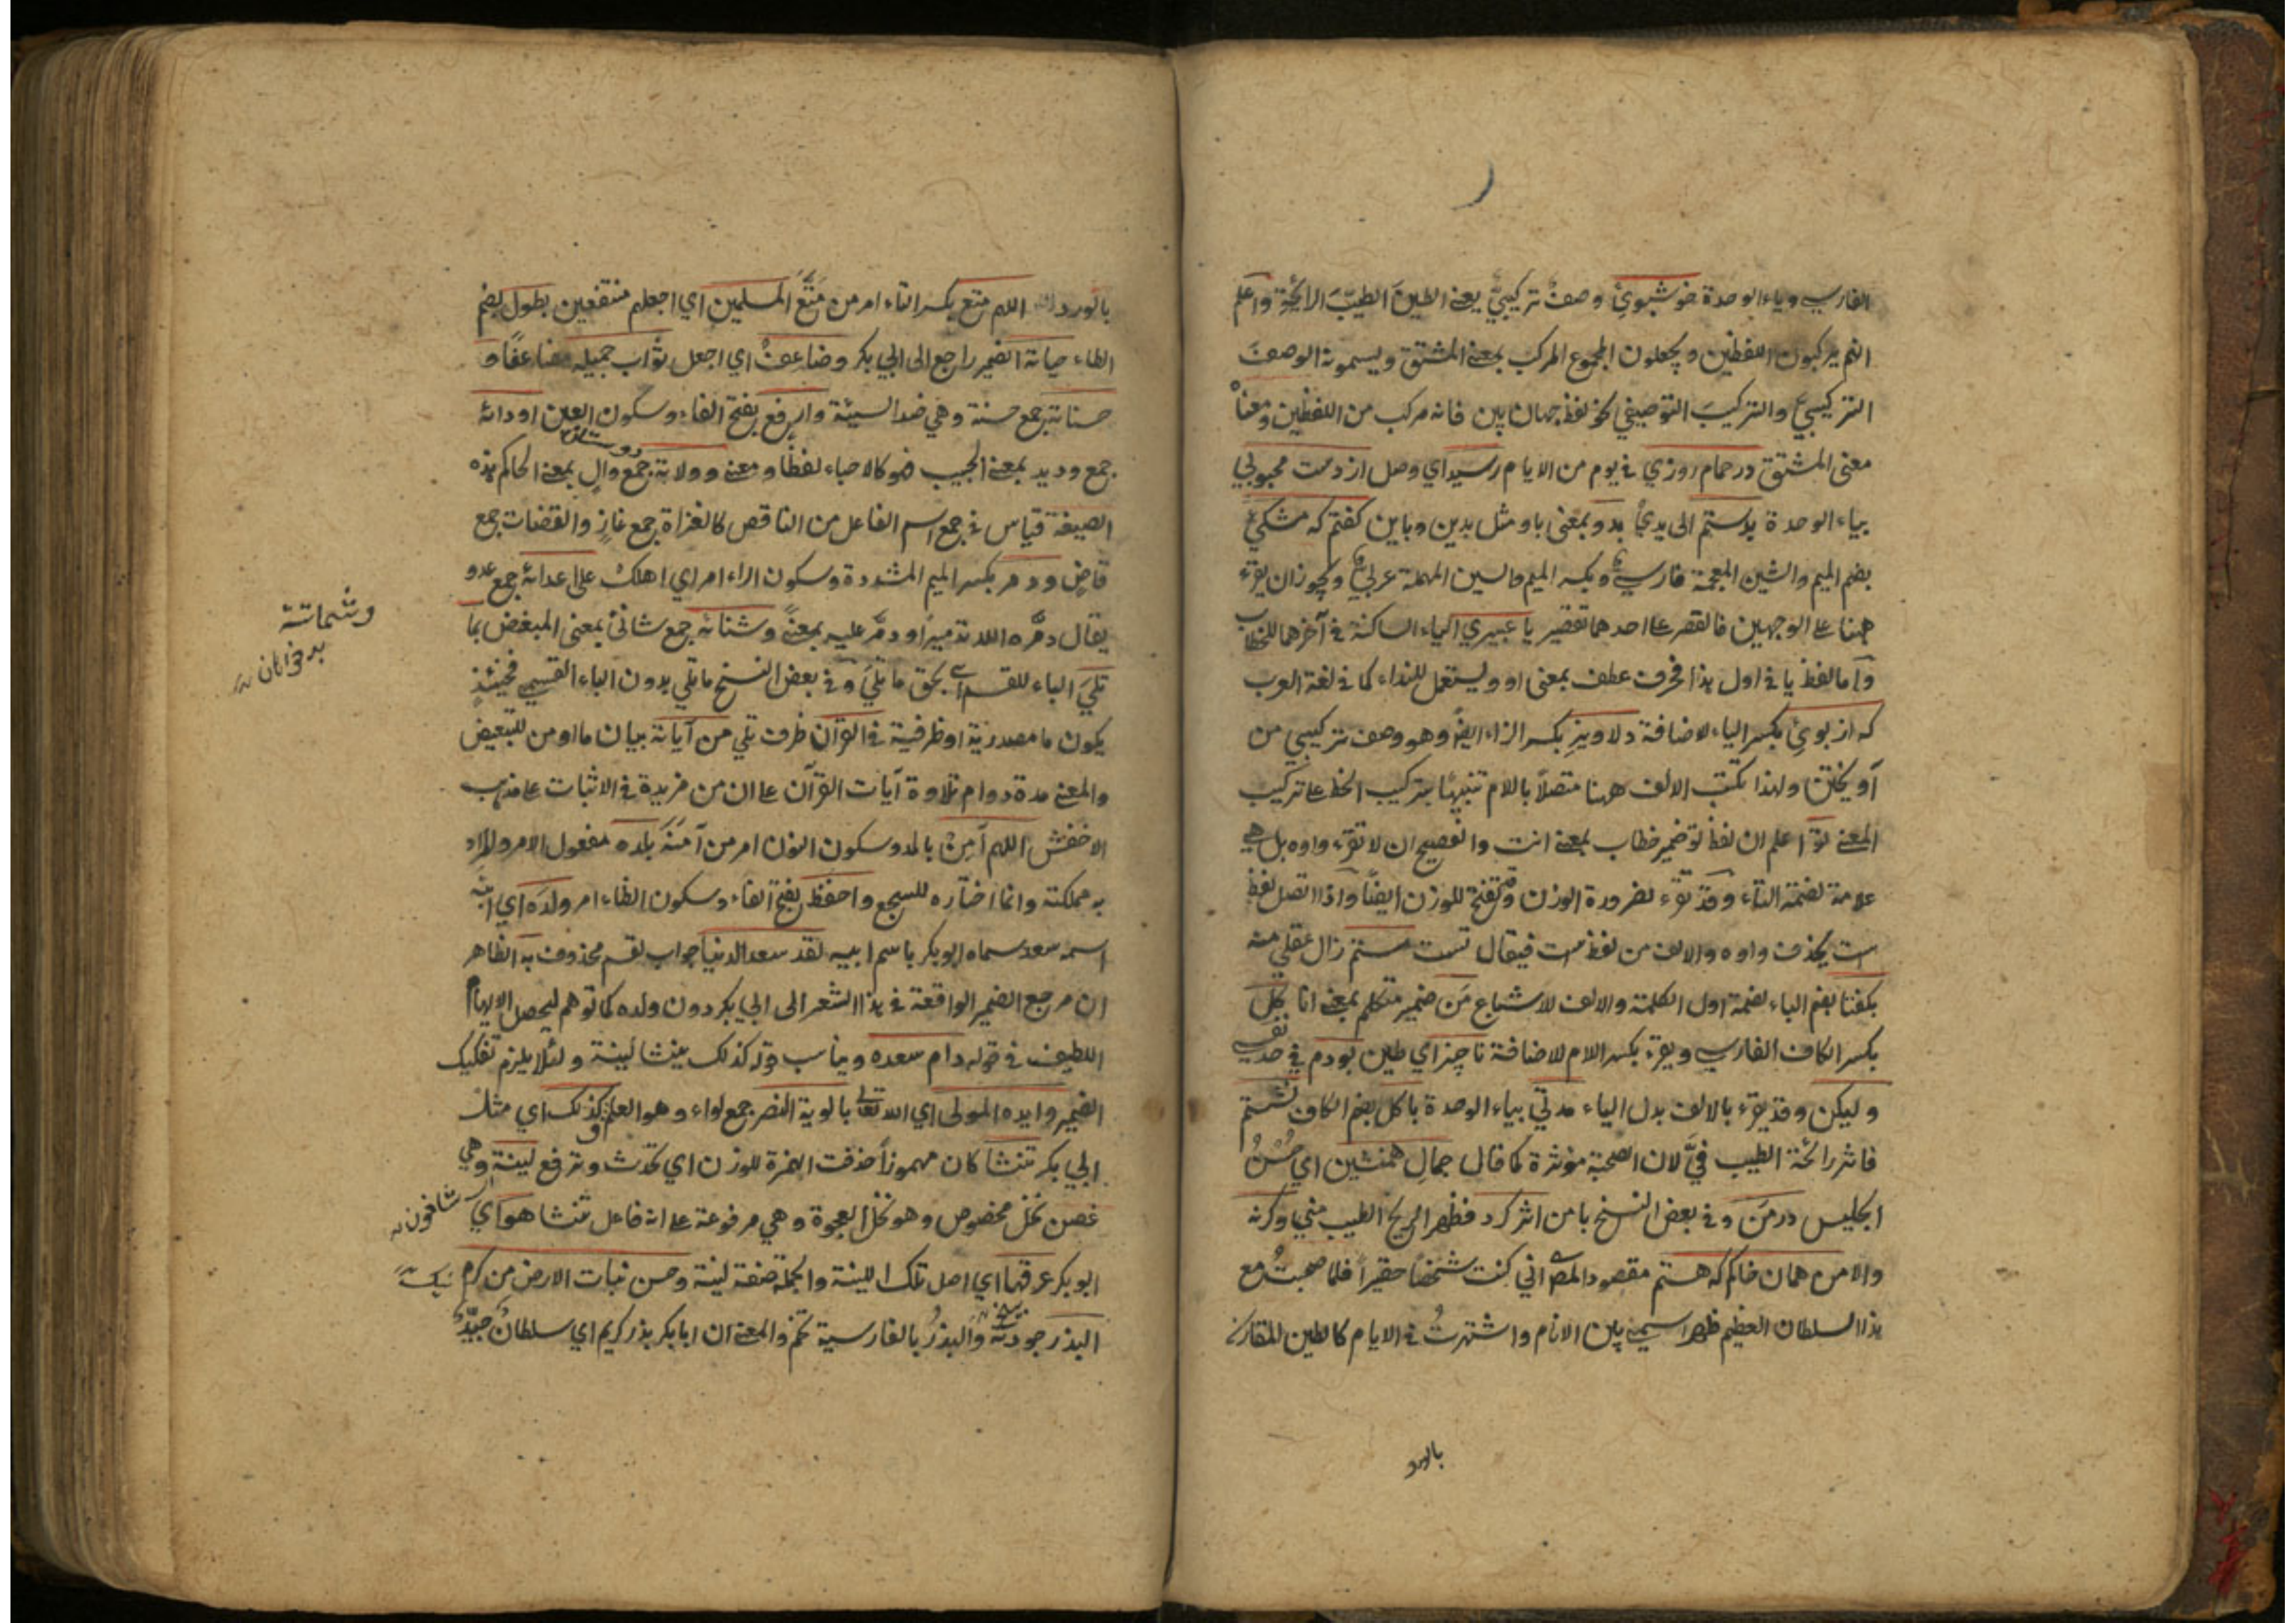 الفارسي وياء الوحدة خوشبوئ وصف تركيبيّ يعنى الطينَ الطيبَ الرائحة واعلم
انهم يركبون اللفظين ويجعلون المجموع المركب بمعنى المشتق ويسمونه الوصف
التركيبيَ والتركيبَ التوصيفي نحو لفظ جهان بين فانه مركب من اللفظين ومعناه
معنى المشتق در حمام روزي في يوم من الايام رسيد اي وصل از دست محبوبي
بياء الوحدة بدستم الى يدي بدو بمعنى باو مثل بدين وباين كفتم كه مشكي
بضم الميم والشين المعجمة فارسي وبكسر الميم والسين المهملة عربي ويجوز ان يقرء
ههنا على الوجهين فالقصر على احدهما تقصير يا عبيري الياء الساكنة في آخرهما للخطاب
وآما لفظ يا في اول هذا فحرف عطف بمعنى او ويستعمل للنداء كما في لغة العرب
كه از بوئ بكسر الياء للاضافة دلاويز بكسر الزاء ايضا وهو وصف تركيبي من
آويختن ولهذا تكتب الالف ههنا متصلاً باللام تنبيها بتركيب الخط على تركيب
المعنى تو اعلم ان لفظ تو ضمير خطاب بمعنى انت والفصيح ان لا تقرء واوه بل هي
علامة لضمة التاء وقد تقرء لضرورة الوزن وقد تفتح للوزن ايضاً واذا اتصل لفظ
است يحذف واوه والالف من لفظ است فيقال تست مستم زال عقلي منه
بكفتا بضم الباء لضمة اول الكلمة والالف للاشباع مَن ضمير متكلم بمعنى انا كل
بكسر الكاف الفارسي ويقرء بكسر اللام للاضافة ناچيز اي طين بودم في حد نفسي
وليكن وقد يقرء بالالف بدل الياء مدتي بياء الوحدة با كل بضم الكاف نشستم
فاثر رائحة الطيب فيّ لان الصحبة مؤثرة كما قال جمالِ همنشين اي حُسْنُ
الجليس در مَن وفي بعض النسخ با من اثر كرد فظهر الريح الطيب مني وكرنه
والا من همان خاكم كه هستم مقصود المص اني كنت شخصاً حقيراً فلما صحبتُ مع
هذا السلطان العظيم ظهر اسمي بين الانام واشتهرتُ في الايام كالطين المقارن
بالورد
بالورد اللهم متع بكسر التاء امر من مَتَّعَ المسلمين اي اجعلهم منتفعين بطول بضم
الطاء حياته الضمير راجع الى ابي بكر وضاعِفْ اي اجعل ثوابَ جميله مضاعفاً و
حسناته جمع حسنة وهي ضد السيئة وارفع بفتح الفاء وسكون العين اودائه
جمع وديد بمعنى الحبيب فهو كالاحباء لفظا ومعنى وولاته جمع والٍ بمعنى الحاكم هذه
الصيغة قياس في جمع اسم الفاعل من الناقص كالغزاة جمع غازٍ والقضات جمع
قاضٍ ودمر بكسر الميم المشددة وسكون الراء امر اي اهلك على اعدائه جمع عدو
يقال دمّره الله تدميراً ودمّر عليه بمعنىً وشنائه جمع شانئ بمعنى المبغض بما
تلي الباء للقسم اي بحق ما تلي وفي بعض النسخ ما تلي بدون الباء القسمي فحينئذٍ
يكون ما مصدرية او ظرفية في القرآن ظرف تلي من آياته بيان ما او من للتبعيض
والمعنى مدة دوام تلاوة آيات القرآن على ان من مزيدة في الاثبات على مذهب
الاخفش اللهم آمِنْ بالمد وسكون النون امر من آمَنَهُ بلده مفعول الامر والمراد
به مملكته وانما اختاره للسجع واحفظ بفتح الفاء وسكون الظاء امر ولدَه اي ابنه
اسمه سعد سماه ابو بكر باسم ابيه لقد سعد الدنيا جواب لقسم محذوف به الظاهر
ان مرجع الضمير الواقعة في هذا الشعر الى ابي بكر دون ولده كما توهم ليحصل الايهام
اللطيف في قوله دام سعده ويناسب قوله كذلك ينشا لينة ولئلا يلزم تفكيك
الضمير وايده المولى اي الله تعالى بالوية النصر جمع لواء وهو العلم كذلك اي مثل
ابي بكر تنشا كان مهموزاً حذفت الهمزة للوزن اي تحدث وترفع لينة وهي
غصن نخل مخصوص وهو نخل العجوة وهي مرفوعة على انه فاعل تنشا هو اي
ابو بكر عرقها اي اصل تلك اللينة والجملة صفة لينة وحسن نبات الارض من كرم
البذر جودته والبذرُ بالفارسية تخم والمعنى ان ابا بكر بذر كريم اي سلطانٌ جيّدٌ
وشماتته
بدخواهان